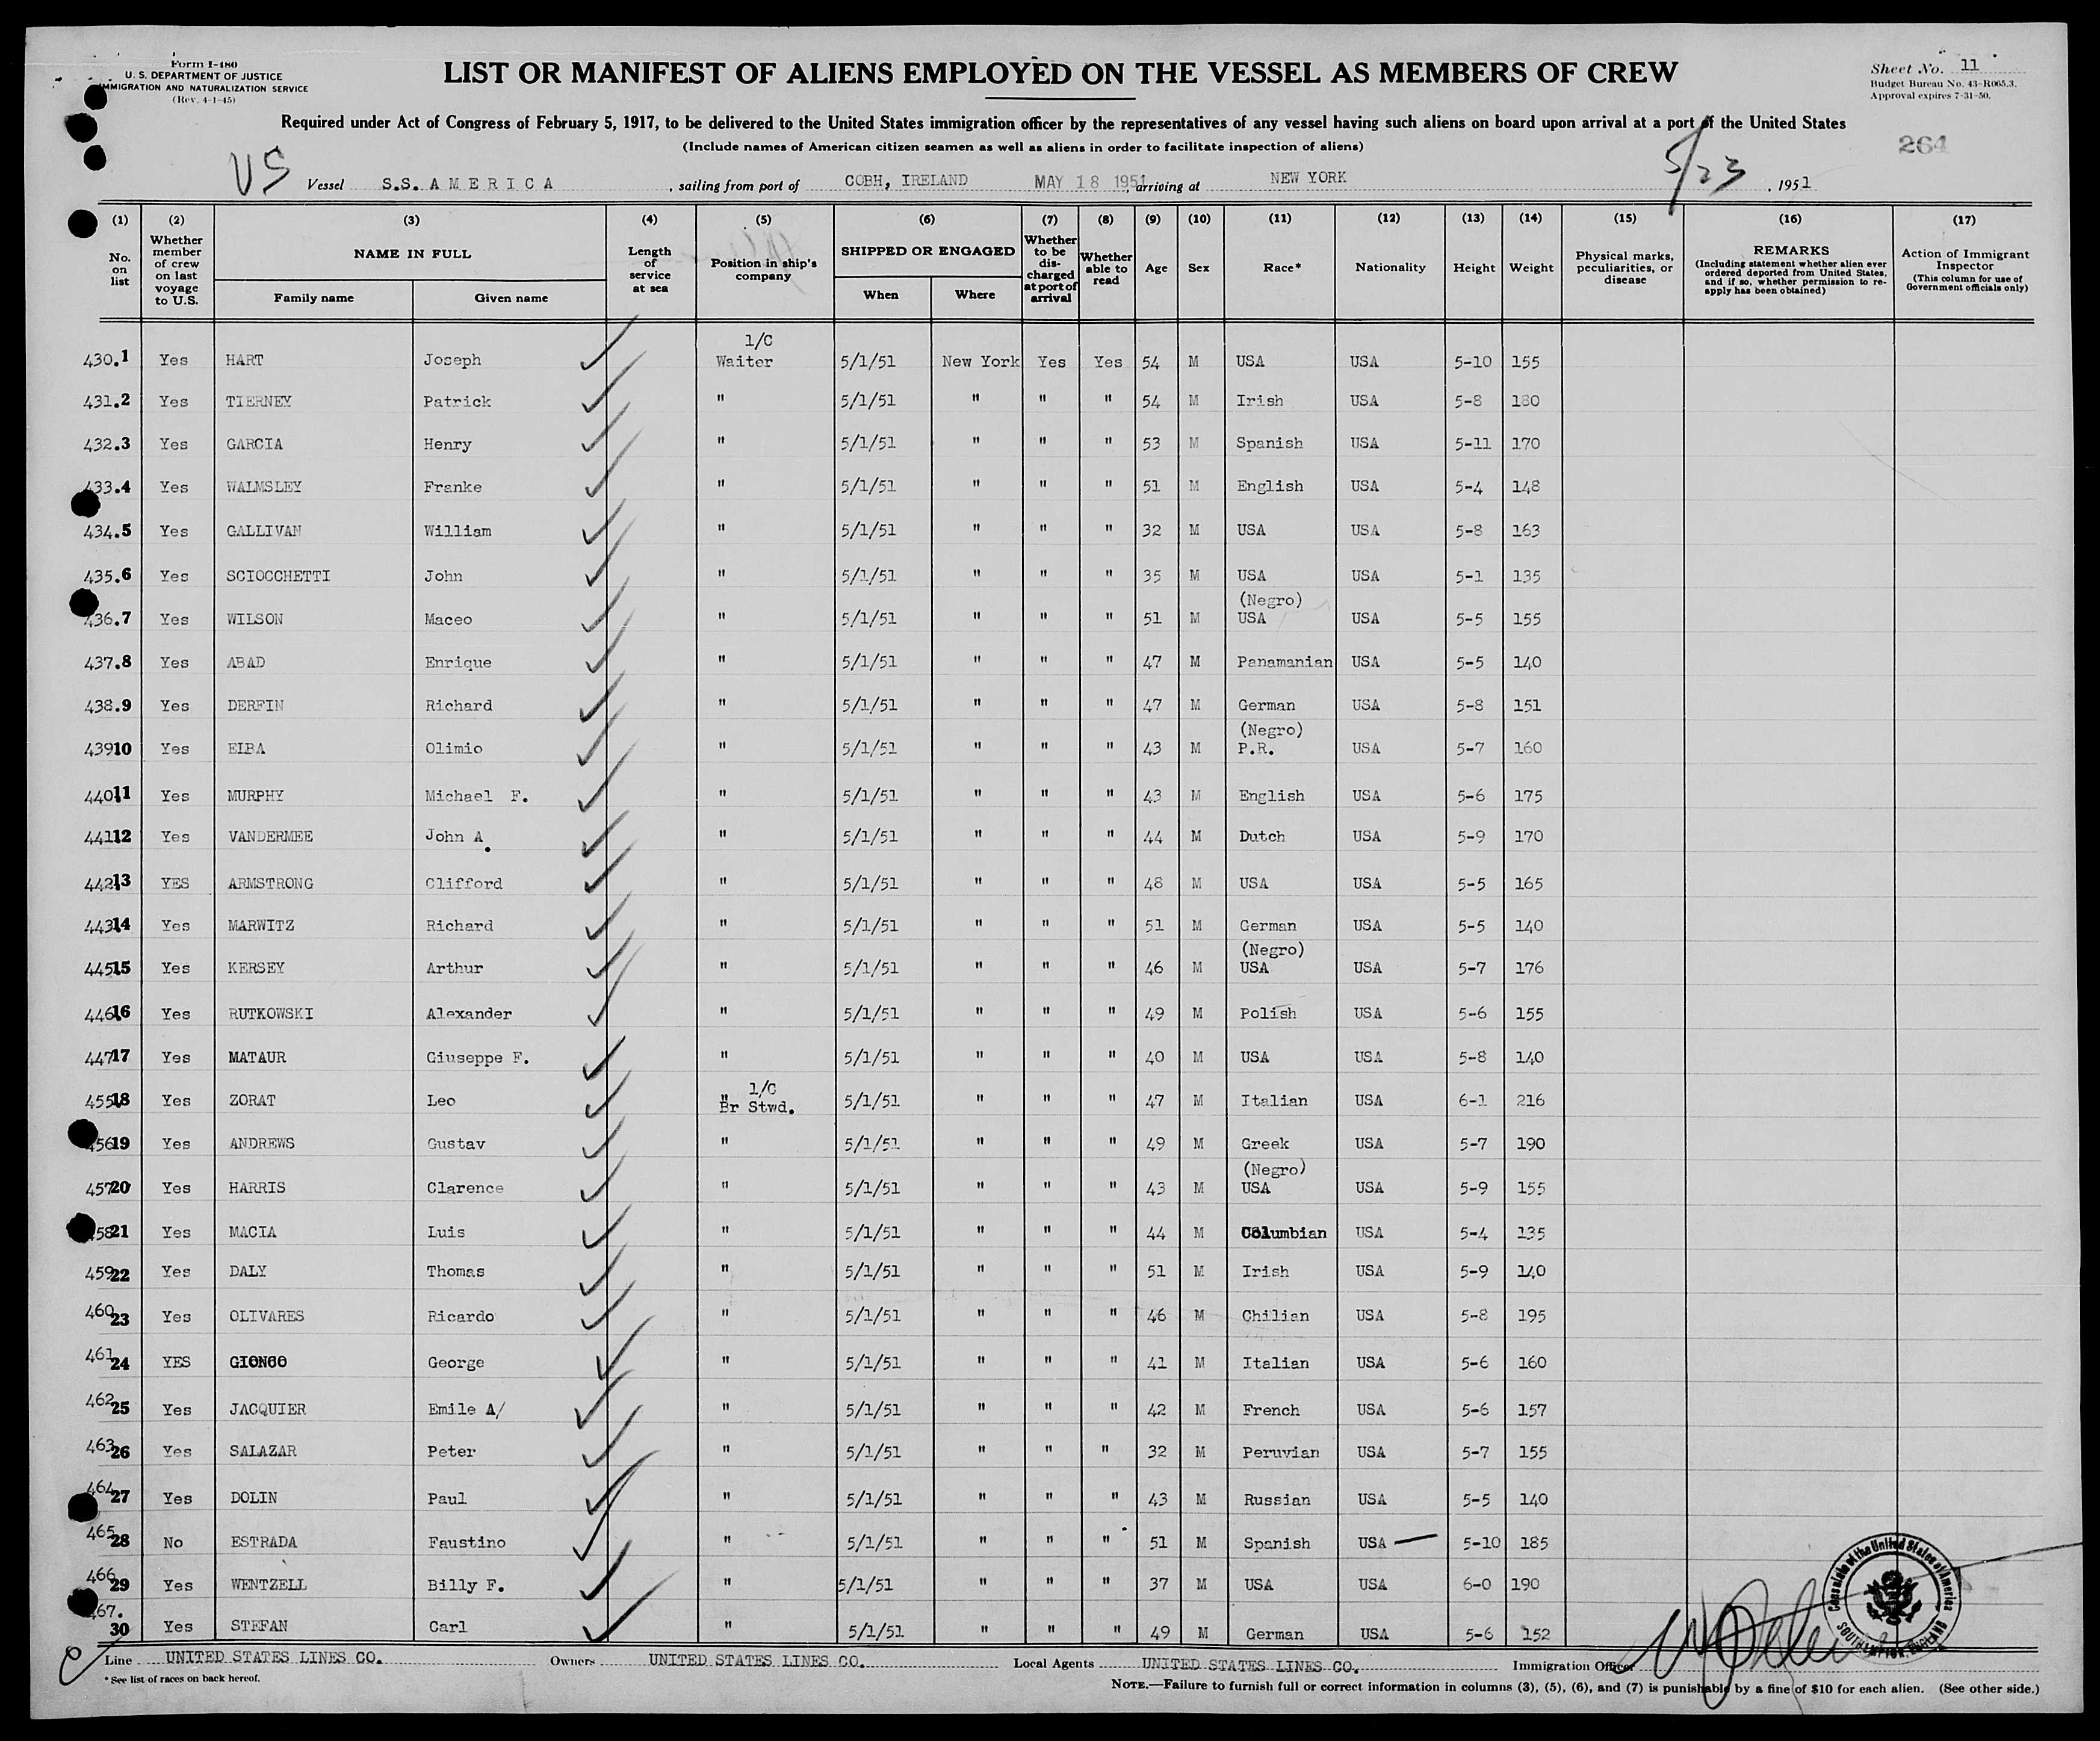 Form I-480
U. S. DEPARTMENT OF JUSTICE
IMMIGRATION AND NATURALIZATION SERVICE
(Rev. 4-1-45)
LIST OR MANIFEST OF ALIENS EMPLOYED ON THE VESSEL AS MEMBERS OF CREW
Sheet No. 11
Budget Bureau No. 43-R065.3.
Approval expires 7-31-50.
Required under Act of Congress of February 5, 1917, to be delivered to the United States immigration officer by the representatives of any vessel having such aliens on board upon arrival at a port of the United States
(Include names of American citizen seamen as well as aliens in order to facilitate inspection of aliens)
264
US
Vessel S.S. AMERICA, sailing from port of COBH, IRELAND MAY 18 1951, arriving at NEW YORK 5/23, 1951
(1) (2) (3) (4) (5) (6) (7) (8) (9) (10) (11) (12) (13) (14) (15) (16) (17)
No. on list
Whether member of crew on last voyage to U.S.
NAME IN FULL
Family name Given name
Length of service at sea
Position in ship's company
SHIPPED OR ENGAGED
When Where
Whether to be discharged at port of arrival
Whether able to read
Age Sex Race* Nationality Height Weight
Physical marks, peculiarities, or disease
REMARKS
(Including statement whether alien ever ordered deported from United States, and if so, whether permission to re-apply has been obtained)
Action of Immigrant Inspector
(This column for use of Government officials only)
1/C
430.1 Yes HART Joseph Waiter 5/1/51 New York Yes Yes 54 M USA USA 5-10 155
431.2 Yes TIERNEY Patrick " 5/1/51 " " " 54 M Irish USA 5-8 180
432.3 Yes GARCIA Henry " 5/1/51 " " " 53 M Spanish USA 5-11 170
433.4 Yes WALMSLEY Franke " 5/1/51 " " " 51 M English USA 5-4 148
434.5 Yes GALLIVAN William " 5/1/51 " " " 32 M USA USA 5-8 163
435.6 Yes SCIOCCHETTI John " 5/1/51 " " " 35 M USA USA 5-1 135
(Negro)
436.7 Yes WILSON Maceo " 5/1/51 " " " 51 M USA USA 5-5 155
437.8 Yes ABAD Enrique " 5/1/51 " " " 47 M Panamanian USA 5-5 140
438.9 Yes DERFIN Richard " 5/1/51 " " " 47 M German USA 5-8 151
(Negro)
43910 Yes ELBA Olimio " 5/1/51 " " " 43 M P.R. USA 5-7 160
440.11 Yes MURPHY Michael F. " 5/1/51 " " " 43 M English USA 5-6 175
441.12 Yes VANDERMEE John A. " 5/1/51 " " " 44 M Dutch USA 5-9 170
442.13 YES ARMSTRONG Clifford " 5/1/51 " " " 48 M USA USA 5-5 165
443.14 Yes MARWITZ Richard " 5/1/51 " " " 51 M German USA 5-5 140
(Negro)
445.15 Yes KERSEY Arthur " 5/1/51 " " " 46 M USA USA 5-7 176
446.16 Yes RUTKOWSKI Alexander " 5/1/51 " " " 49 M Polish USA 5-6 155
447.17 Yes MATAUR Giuseppe F. " 5/1/51 " " " 40 M USA USA 5-8 140
1/C
455.18 Yes ZORAT Leo Br Stwd. 5/1/51 " " " 47 M Italian USA 6-1 216
456.19 Yes ANDREWS Gustav " 5/1/51 " " " 49 M Greek USA 5-7 190
(Negro)
457.20 Yes HARRIS Clarence " 5/1/51 " " " 43 M USA USA 5-9 155
458.21 Yes MACIA Luis " 5/1/51 " " " 44 M Columbian USA 5-4 135
459.22 Yes DALY Thomas " 5/1/51 " " " 51 M Irish USA 5-9 140
460.23 Yes OLIVARES Ricardo " 5/1/51 " " " 46 M Chilian USA 5-8 195
461 24 YES GIONGO George " 5/1/51 " " " 41 M Italian USA 5-6 160
462 25 Yes JACQUIER Emile A/ " 5/1/51 " " " 42 M French USA 5-6 157
463 26 Yes SALAZAR Peter " 5/1/51 " " " 32 M Peruvian USA 5-7 155
464 27 Yes DOLIN Paul " 5/1/51 " " " 43 M Russian USA 5-5 140
465 28 No ESTRADA Faustino " 5/1/51 " " " 51 M Spanish USA 5-10 185
466 29 Yes WENTZELL Billy F. " 5/1/51 " " " 37 M USA USA 6-0 190
467. 30 Yes STEFAN Carl " 5/1/51 " " " 49 M German USA 5-6 152
Consulate of the United States of America SOUTHAMPTON, ENGLAND
Line UNITED STATES LINES CO. Owners UNITED STATES LINES CO. Local Agents UNITED STATES LINES CO. Immigration Officer
* See list of races on back hereof.
NOTE.—Failure to furnish full or correct information in columns (3), (5), (6), and (7) is punishable by a fine of $10 for each alien. (See other side.)